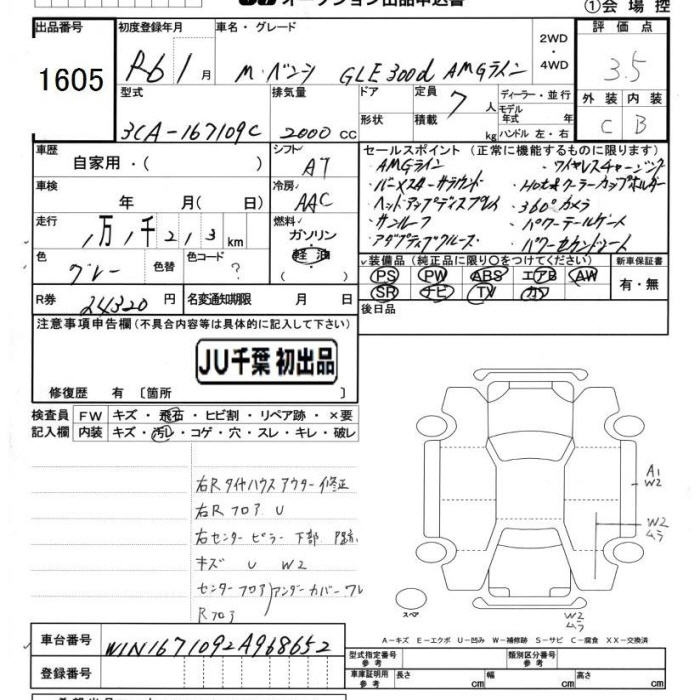 オークション出品申込書
①会場控
出品番号
1605
初度登録年月
R6 1月
車名・グレード
M・ベンツ GLE300d AMGライン
2WD・4WD
評価点
3.5
外装 内装
C B
型式
3CA-167109C
排気量
2000 CC
ドア
形状
定員 7人
積載 kg
ディーラー・並行
モデル年式 年
ハンドル 左・右
車歴
自家用・( )
シフト
AT
車検
年 月( 日)
冷房
AAC
走行
1万1千213km
燃料
ガソリン
軽油
色
グレー
色替
色コード
?
R券 24320円
名変通知期限 月 日
セールスポイント (正常に機能するものに限ります)
・AMGライン ・ワイヤレスチャージング
・バーメスターサラウンド ・Hot&クーラーカップホルダー
・ヘッドアップディスプレイ ・360°カメラ
・サンルーフ ・パワーテールゲート
・アダプティブクルーズ ・パワーセカンドシート
装備品 (純正品に限り○をつけてください)
PS PW ABS エアB AW
SR ナビ TV カワ
新車保証書
有・無
後日品
注意事項申告欄(不具合内容等は具体的に記入して下さい)
JU千葉 初出品
修復歴 有 〔箇所 〕
検査員記入欄
FW キズ・飛石・ヒビ割・リペア跡・×要
内装 キズ・汚レ・コゲ・穴・スレ・キレ・破レ
右Rタイヤハウスアウター修正
右Rフロア U
右センターピラー下部
キズ U W2
センターフロア アンダーカバーワレ
Rフロア
A1
W2
W2
ムラ
W2
ムラ
スペア
A-キズ E-エクボ U-凹み W-補修跡 S-サビ C-腐食 XX-交換済
車台番号
W1N1671092A968652
登録番号
型式指定番号 参考
類別区分番号 参考
車庫証明用 参考
長さ cm
幅 cm
高さ cm